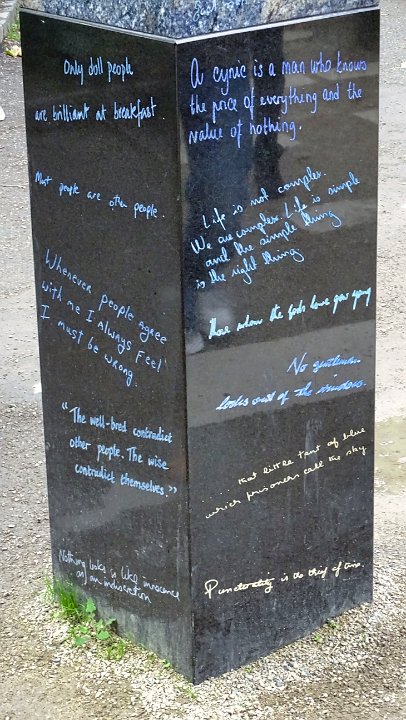 Only doll people
are brilliant at breakfast
Most people are other people.
Whenever people agree
with me I always feel
I must be wrong.
"The well-bred contradict
other people. The wise
contradict themselves."
Nothing looks so like innocence
as an indiscretion
A cynic is a man who knows
the price of everything and the
value of nothing.
Life is not complex.
We are complex. Life is simple
and the simple thing
is the right thing
those whom the gods love grow young
No gentleman
looks out of the window.
........ that little tent of blue
which prisoners call the sky
Punctuality is the thief of time.